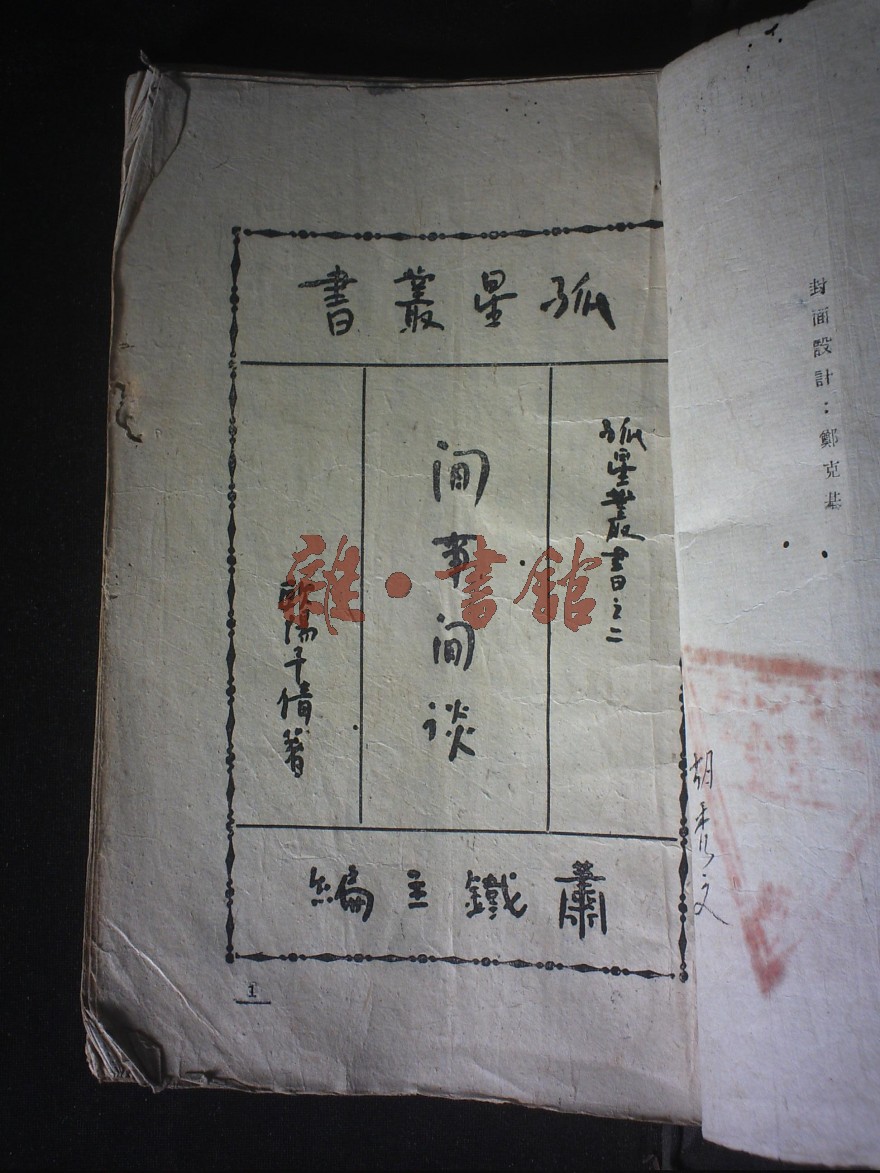 封面設計：鄭克基
孤星叢書
孤星叢書之二
閒事閒談
歐陽予倩著
蕭鐵主編
1
雜·書館